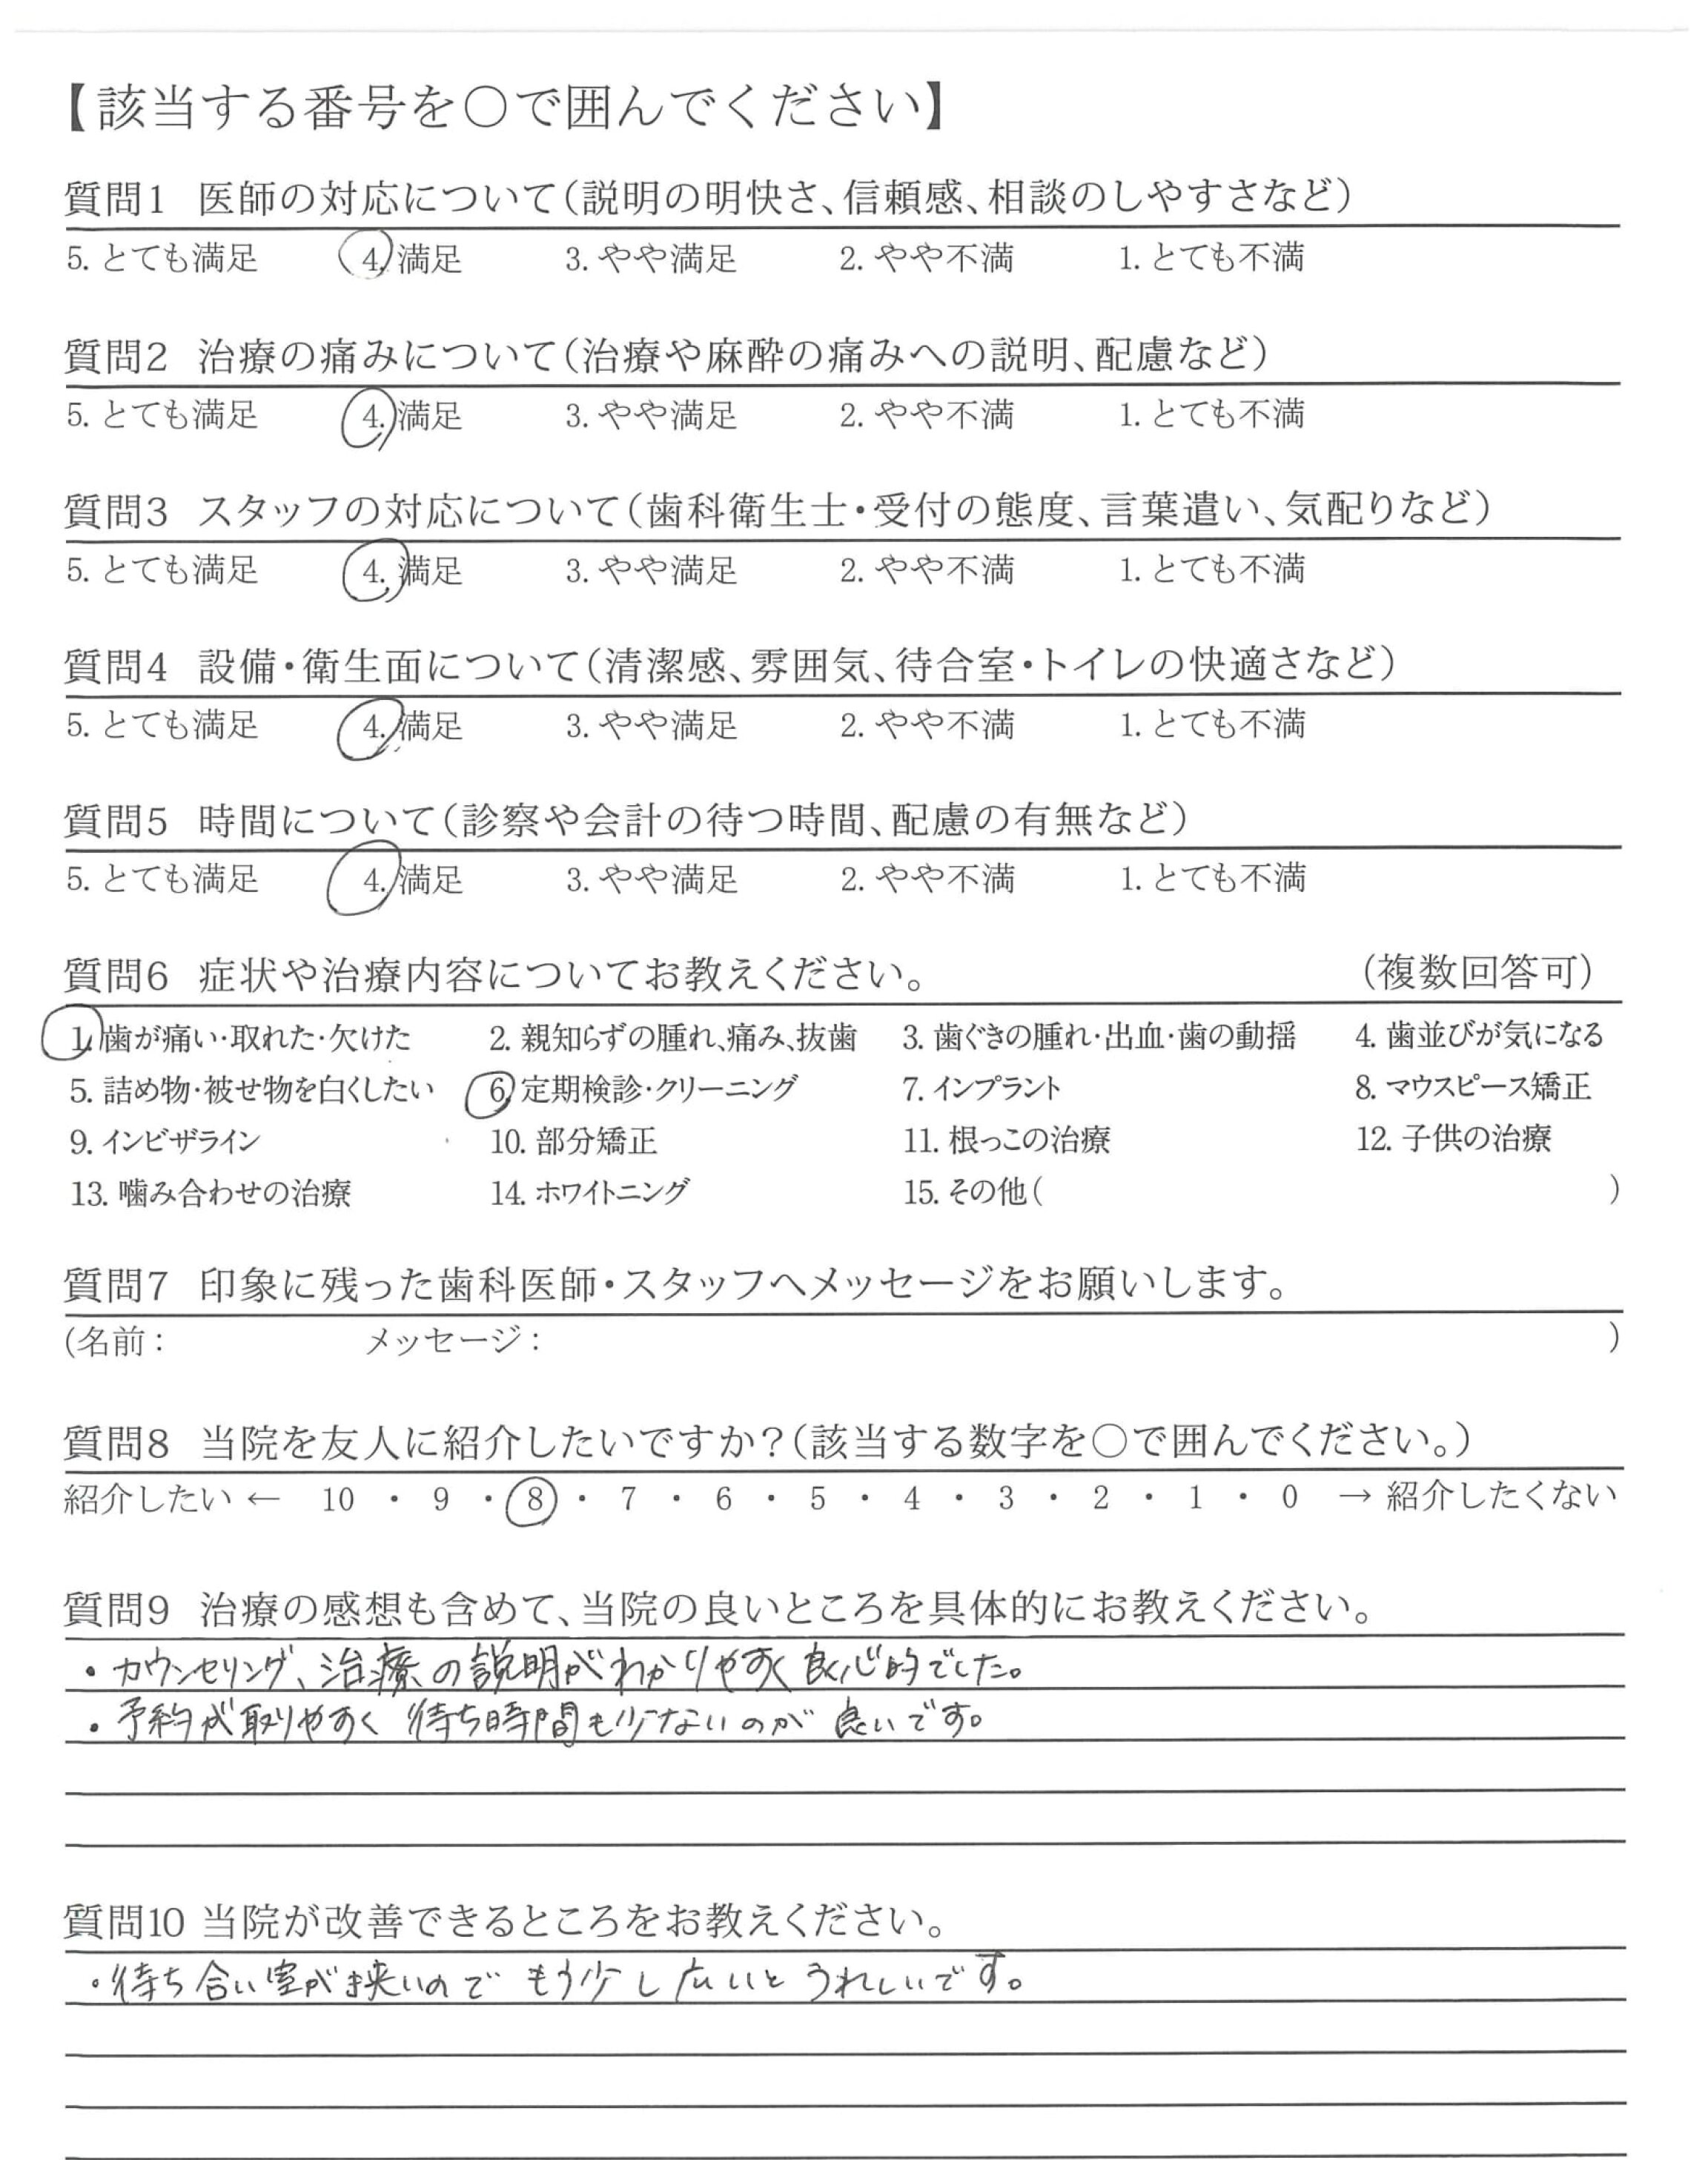 【該当する番号を〇で囲んでください】
質問1 医師の対応について(説明の明快さ、信頼感、相談のしやすさなど)
5. とても満足 4. 満足 3. やや満足 2. やや不満 1. とても不満
質問2 治療の痛みについて(治療や麻酔の痛みへの説明、配慮など)
5. とても満足 4. 満足 3. やや満足 2. やや不満 1. とても不満
質問3 スタッフの対応について(歯科衛生士・受付の態度、言葉遣い、気配りなど)
5. とても満足 4. 満足 3. やや満足 2. やや不満 1. とても不満
質問4 設備・衛生面について(清潔感、雰囲気、待合室・トイレの快適さなど)
5. とても満足 4. 満足 3. やや満足 2. やや不満 1. とても不満
質問5 時間について(診察や会計の待つ時間、配慮の有無など)
5. とても満足 4. 満足 3. やや満足 2. やや不満 1. とても不満
質問6 症状や治療内容についてお教えください。 (複数回答可)
1. 歯が痛い・取れた・欠けた 2. 親知らずの腫れ、痛み、抜歯 3. 歯ぐきの腫れ・出血・歯の動揺 4. 歯並びが気になる
5. 詰め物・被せ物を白くしたい 6. 定期検診・クリーニング 7. インプラント 8. マウスピース矯正
9. インビザライン 10. 部分矯正 11. 根っこの治療 12. 子供の治療
13. 噛み合わせの治療 14. ホワイトニング 15. その他( )
質問7 印象に残った歯科医師・スタッフへメッセージをお願いします。
(名前: メッセージ: )
質問8 当院を友人に紹介したいですか?(該当する数字を〇で囲んでください。)
紹介したい ← 10 ・ 9 ・ 8 ・ 7 ・ 6 ・ 5 ・ 4 ・ 3 ・ 2 ・ 1 ・ 0 → 紹介したくない
質問9 治療の感想も含めて、当院の良いところを具体的にお教えください。
・カウンセリング、治療の説明がわかりやすく良心的でした。
・予約が取りやすく 待ち時間も少ないのが 良いです。
質問10 当院が改善できるところをお教えください。
・待ち合い室が狭いので もう少し広いと うれしいです。